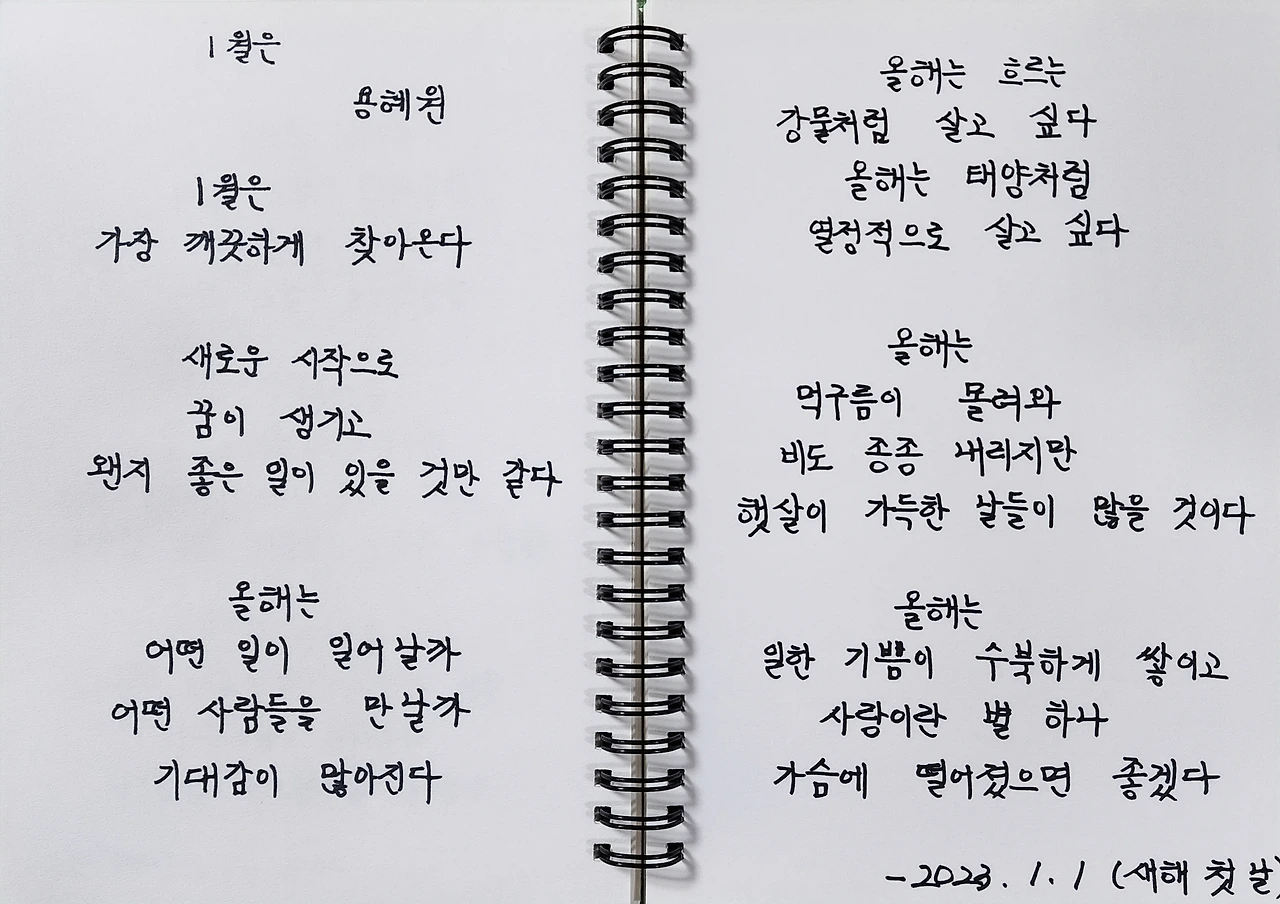 1월은
용혜원
1월은
가장 깨끗하게 찾아온다
새로운 시작으로
꿈이 생기고
왠지 좋은 일이 있을 것만 같다
올해는
어떤 일이 일어날까
어떤 사람들을 만날까
기대감이 많아진다
올해는 흐르는
강물처럼 살고 싶다
올해는 태양처럼
열정적으로 살고 싶다
올해는
먹구름이 몰려와
비도 종종 내리지만
햇살이 가득한 날들이 많을 것이다
올해는
일한 기쁨이 수북하게 쌓이고
사랑이란 별 하나
가슴에 떨어졌으면 좋겠다
-2023. 1. 1 (새해 첫 날)